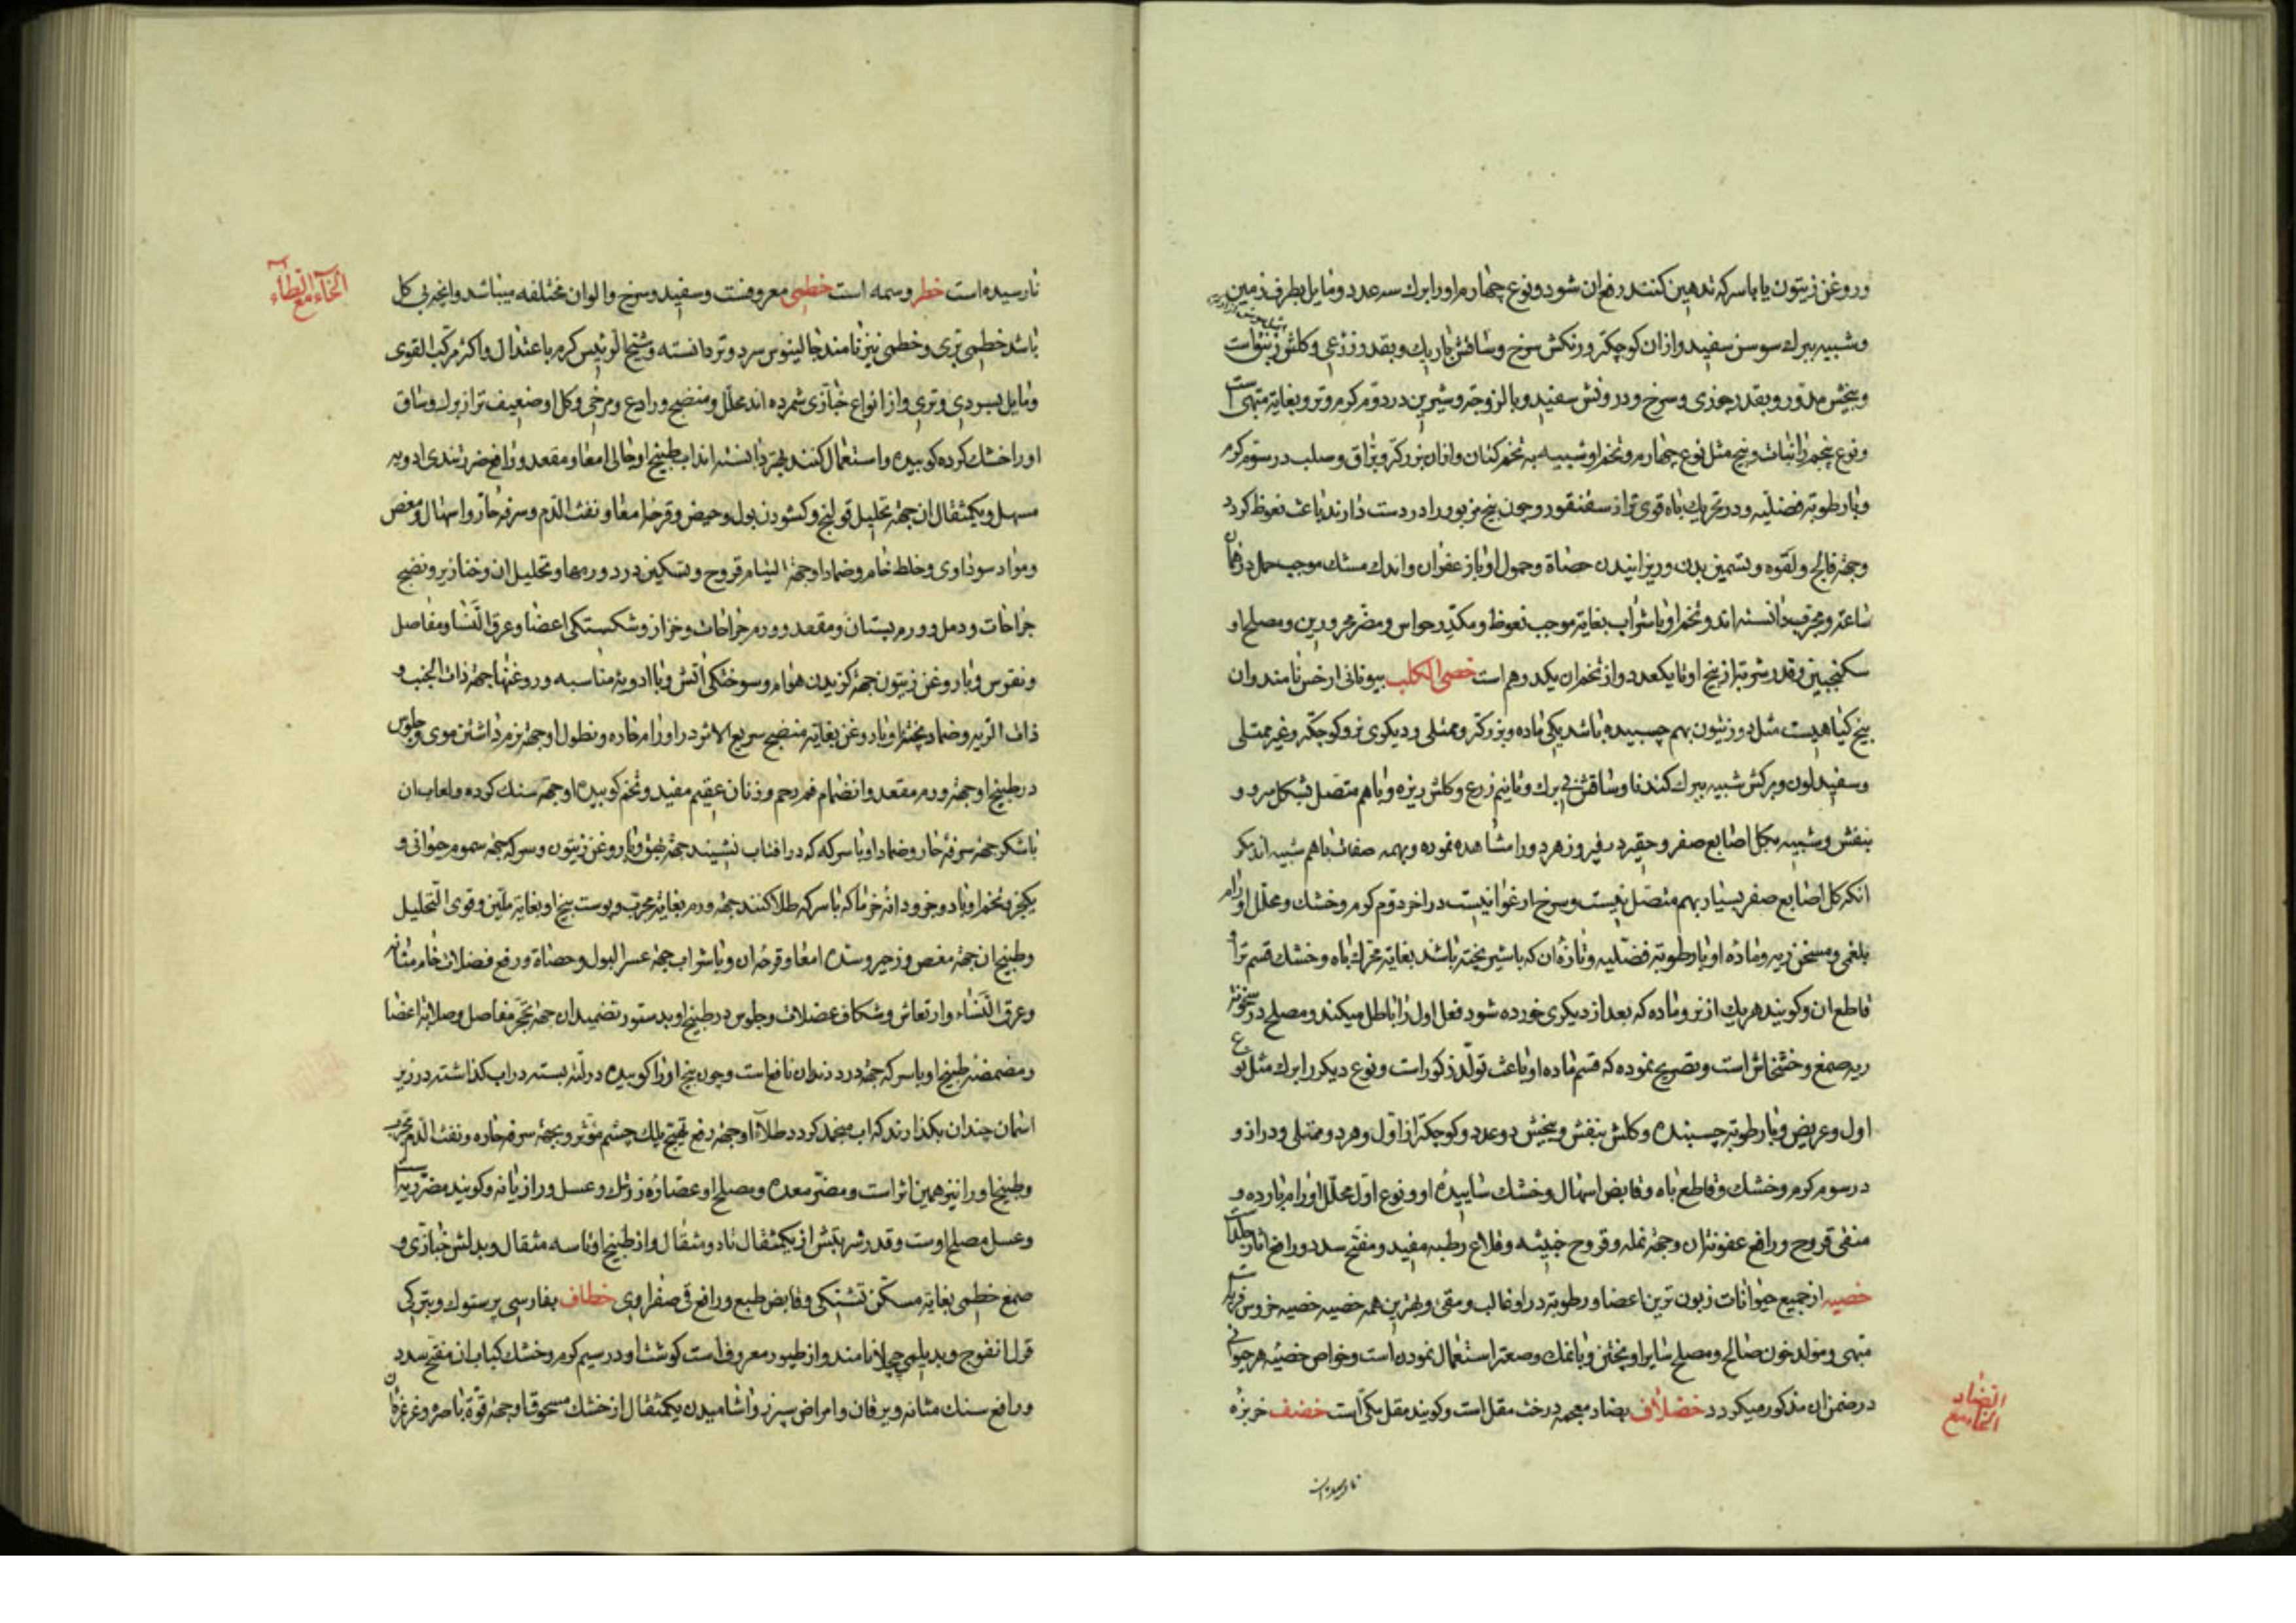 وروغن زیتون یا با سرکه تدهین کنند رفع ان شود و نوع چهارم او را برك سه عدد و مایل بطرف زمین
و شبیه ببرك سوسن سفید و ازان کوچکتر و رنکش سرخ و ساقش باریك و بقدر ذرعی و کلش
و بیخش مدور و بقدر جوزی و سرخ و درونش سفید و با لزوجة و شیرین در دوم کرم و تر و بغایة مبهی است
و نوع پنجم را نبات و بیخ مثل نوع چهارم و تخم او شبیه به تخم کتان و ازان بزرکتر و براق و صلب در سوم کرم
و با رطوبة فضلیه و در تحریك باه قوی تر از سقنقور و چون بیخ مزبور را در دست دارند باعث نعوظ کردد
و جهة فالج و لقوه و تسمین بدن و ریزانیدن حصاة و حمول او با زعفران و اندك مشك موجب حمل در همان
ساعة و مجرب دانسته اند و تخم او با شراب بغایة موجب نعوظ و مکدر حواس و مضر محرورین و مصلح او
سکنجبین و قدر شربة از بیخ او تا یکعدد و از تخم ان یکدرهم است خصی الکلب بیونانی ارخس نامند و ان
بیخ کیاهیست مثل دو زیتون بهم چسبیده باشد یکی ماده و بزرکتر و ممتلی و دیکری نر و کوچکتر و غیر ممتلی
و سفید لون و برکش شبیه ببرك کندنا و ساقش بی برك و تا نیم ذرع و کلش ریزه و با هم متصل بشکل سرو و
بنفش و شبیه بکل اصابع صفر و حقیر در فیروزه هر دو را مشاهده نموده و بهمه صفات با هم شبیه اند مکر
انکه کل اصابع صفر بسیار بهم متصل نیست و سرخ ارغوانیست در اخر دوم کرم و خشك و محلل اورام
بلغمی و مسخن ریه و ماده او با رطوبة فضلیه و تازه ان که با شیر پخته باشد بغایة محرك باه و خشك قسم نر او
قاطع ان و کویند هر یك از نر و ماده که بعد از دیکری خورده شود فعل اول را باطل میکند و مصلح در خشونة
ریه صمغ و خشخاش است و تصریح نموده که قسم ماده او باعث تولد ذکور است و نوع دیکر را برك مثل نوع
اول و عریض و با رطوبة چسبنده و کلش بنفش و بیخش دو عدد و کوچکتر از اول و هر دو ممتلی و دراز و
در سوم کرم و خشك و قاطع باه و قابض اسهال و خشك ساییده او و نوع اول محلل اورام بارده و
منقی قروح و رافع عفونة ان و جهة نمله و قروح خبیثه و قلاع رطبه مفید و مفتح سدد و رافع
خصیه از جمیع حیوانات زبون ترین اعضا و رطوبة در او غالب و مقی و بهترین همه خصیه خصیه خروس فربه است
مبهی و مولد خون صالح و مصلح سایر او پختن و با نمك و صعتر استعمال نمودن است و خواص خصیه هر حیوانی
در ضمن ان مذکور میکردد خضلاف بضاد معجمه درخت مقل است و کویند مقل مکی است خضف خربزه
الخاء مع الضاد
نارسیده است
الخاء مع الطاء
نارسیده است خطر وسمه است خطمی معروفست و سفید و سرخ و الوان مختلفه میباشد و انچه بی کل
باشد خطمی بری و خطمی نیز نامند جالینوس سرد و تر دانسته و شیخ الرئیس کرم باعتدال و اکثر مرکب القوی
و مایل بسردی و تری و از انواع خبازی شمرده اند محلل و منضج و رادع و مرخی و کل او ضعیف تر از برك و ساق
او را خشك کرده کوبیده و استعمال کنند بهتر دانسته اند اب طبیخ او جالی امعا و مقعد و رافع ضرر تندی ادویه
مسهل و یکمثقال ان جهة تحلیل قولنج و کشودن بول و حیض و قرحه امعا و نفث الدم و سرفه حار و اسهال و مغص
و مواد سوداوی و خلط خام و ضماد او جهة التیام قروح و تسکین درد ورمها و تحلیل ان و خنازیر و نضج
جراحات و دمل و ورم پستان و مقعد و ورم جراحات و خراز و شکستکی اعضا و عرق النسا و مفاصل
و نقرس و با روغن زیتون جهة کزیدن هوام و سوختکی اتش و با ادویه مناسبه و روغنها جهة ذات الجنب و
ذات الریه و ضماد پخته او با روغن بغایة منضج سریع الاثر در اورام حاره و نطول او جهة نرم داشتن موی و جلوس
در طبیخ او جهة ورم مقعد و انضمام فم رحم و زنان عقیم مفید و تخم کوبیده او جهة سنك کرده و لعاب ان
با شکر جهة سرفه حار و ضماد او با سرکه که در افتاب نشینند جهة بهق و با روغن زیتون و سرکه جهة سموم حیوانی و
یکجزو تخم او با دو جزو دانه خرما که با سرکه طلا کنند جهة ورم بغایة مجرب و پوست بیخ او بغایة ملین و قوی التحلیل
و طبیخ ان جهة مغص و زحیر و سده امعا و قرحه ان و با شراب جهة عسر البول و حصاة و رفع فضلات خام مثانه
و عرق النساء و ارتعاش و شکاف عضلات و جلوس در طبیخ او بدستور تضمید ان جهة تحجر مفاصل و صلابة اعضا
و مضمضه طبیخ او با سرکه جهة درد دندان نافع است و چون بیخ او را کوبیده در لته بسته در اب کذاشته در زیر
اسمان چندان بکذارند که اب منجمد کردد طلاء او جهة رفع تهیج پلك چشم مؤثر و بجهة سرفه حاره و نفث الدم مجرب
و طبیخ او را نیز همین اثر است و مضر معده و مصلح او عصاره زرشك و عسل و رازیانه و کویند مضر ریه است
و عسل مصلح اوست و قدر شربتش از یکمثقال تا دو مثقال و از طبیخ او تا سه مثقال و بدلش خبازی و
صمغ خطمی بغایة مسکن تشنکی و قابض طبع و رافع قی صفراوی خطاف بفارسی پرستوك و بترکی
قرلانغوج و بدیلمی چیلا نامند و از طیور معروف است کوشت او در سیم کرم و خشك کباب ان مفتح سدد
و رافع سنك مثانه و یرقان و امراض سپرز و اشامیدن یکمثقال از خشك مسحوق او جهة قوة باصره و غرغره ان